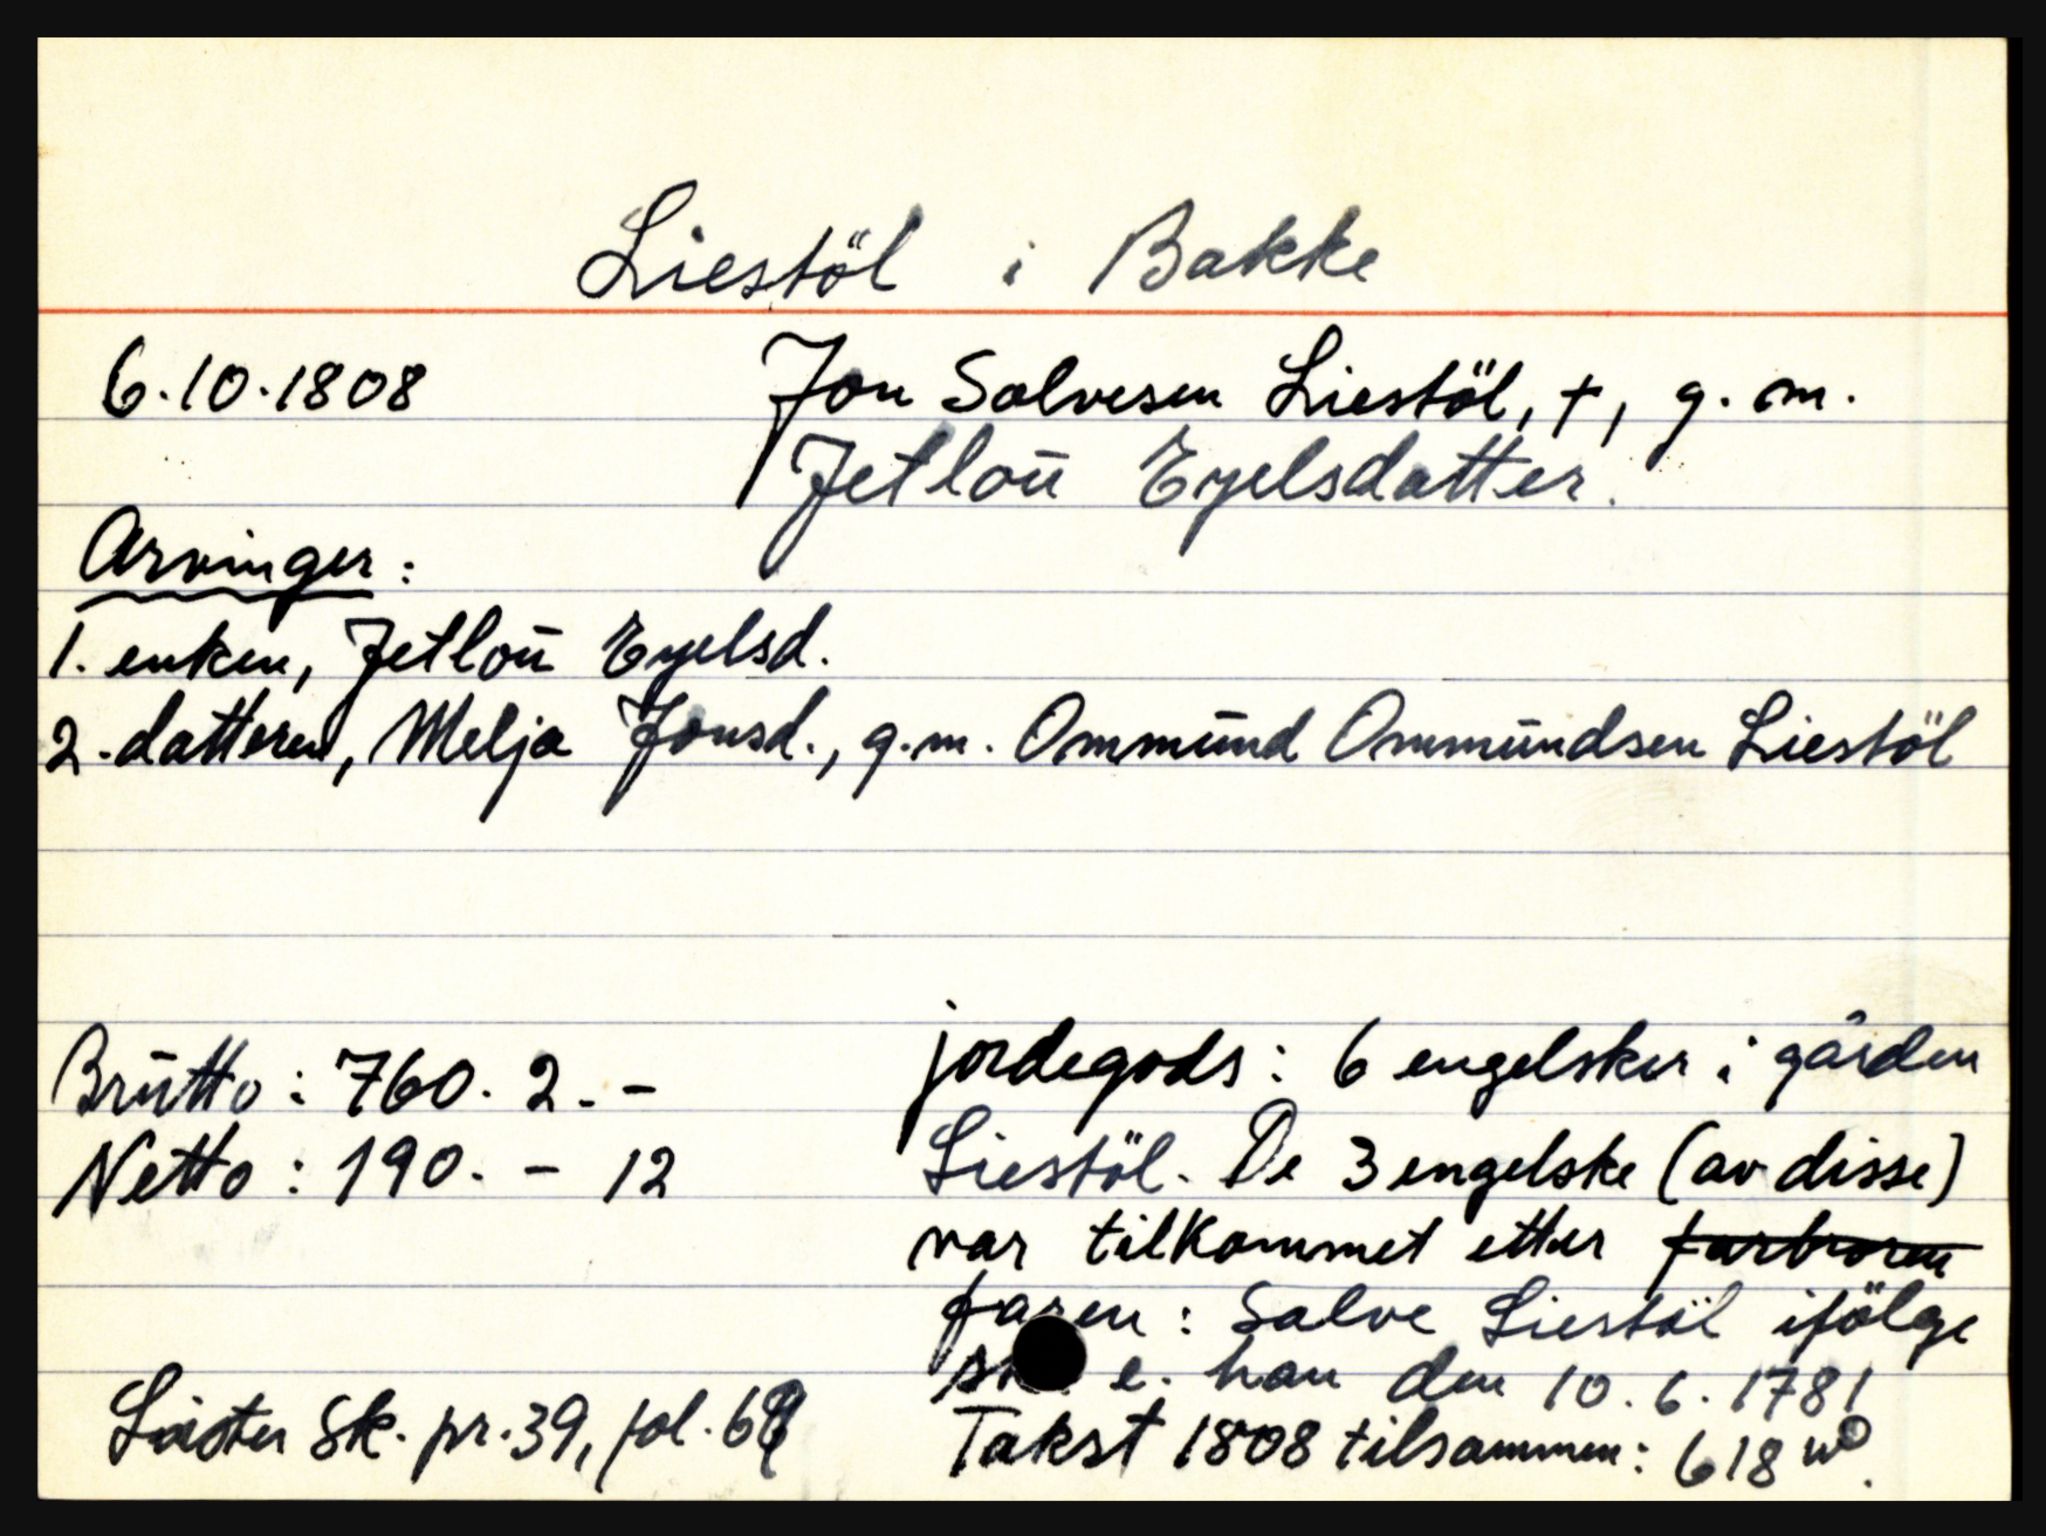 Liestöl i Bakke
6.10.1808 Jon Salvesen Liestöl, +, g. m.
Jetloū Eyelsdatter.
Arvinger:
1. enken, Jetloū Eyelsd.
2. datteren, Melja Jonsd., g.m. Ommūnd Ommūndsen Liestöl
Brūtto: 760. 2. -
Netto: 190. - 12
jordegods: 6 engelsker i gården
Liestöl. De 3 engelske (av disse)
var tilkommet etter farbroren
faren: Salve Liestöl ifölge
e. han den 10.6.1781
Takst 1808 tilsammen: 618
Lister Sk. pr. 39, fol.